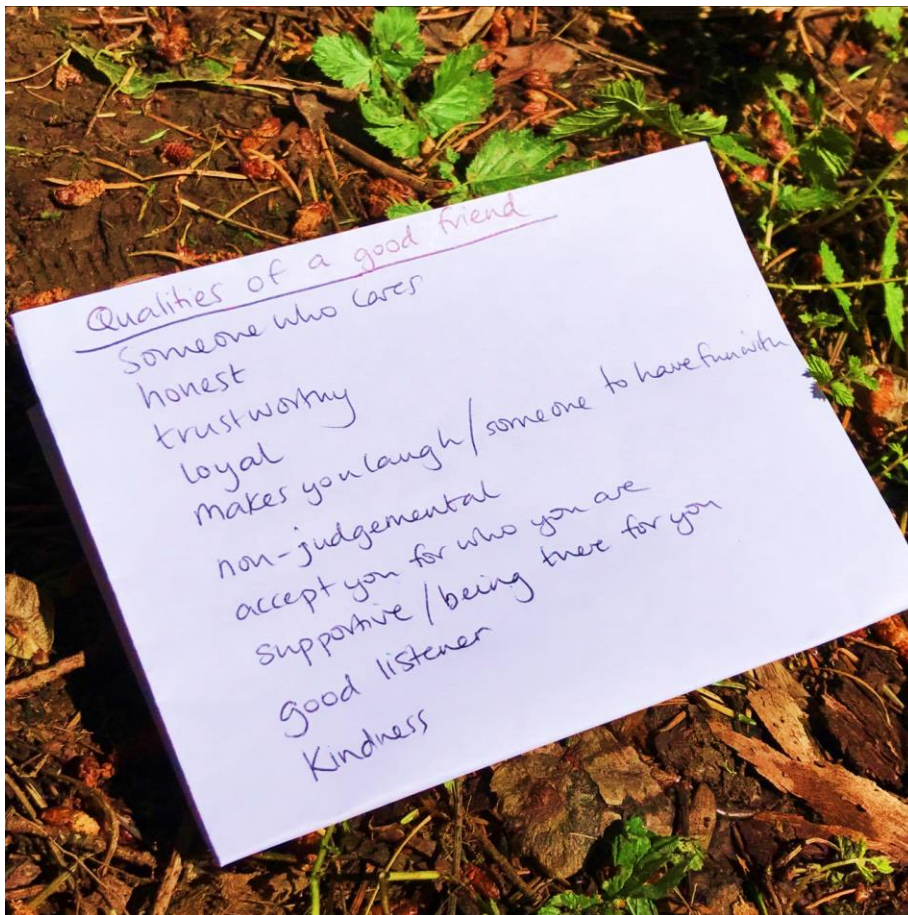 Qualities of a good friend
Someone who cares
honest
trustworthy
loyal
makes you laugh/someone to have fun with
non-judgemental
accept you for who you are
supportive/being there for you
good listener
Kindness